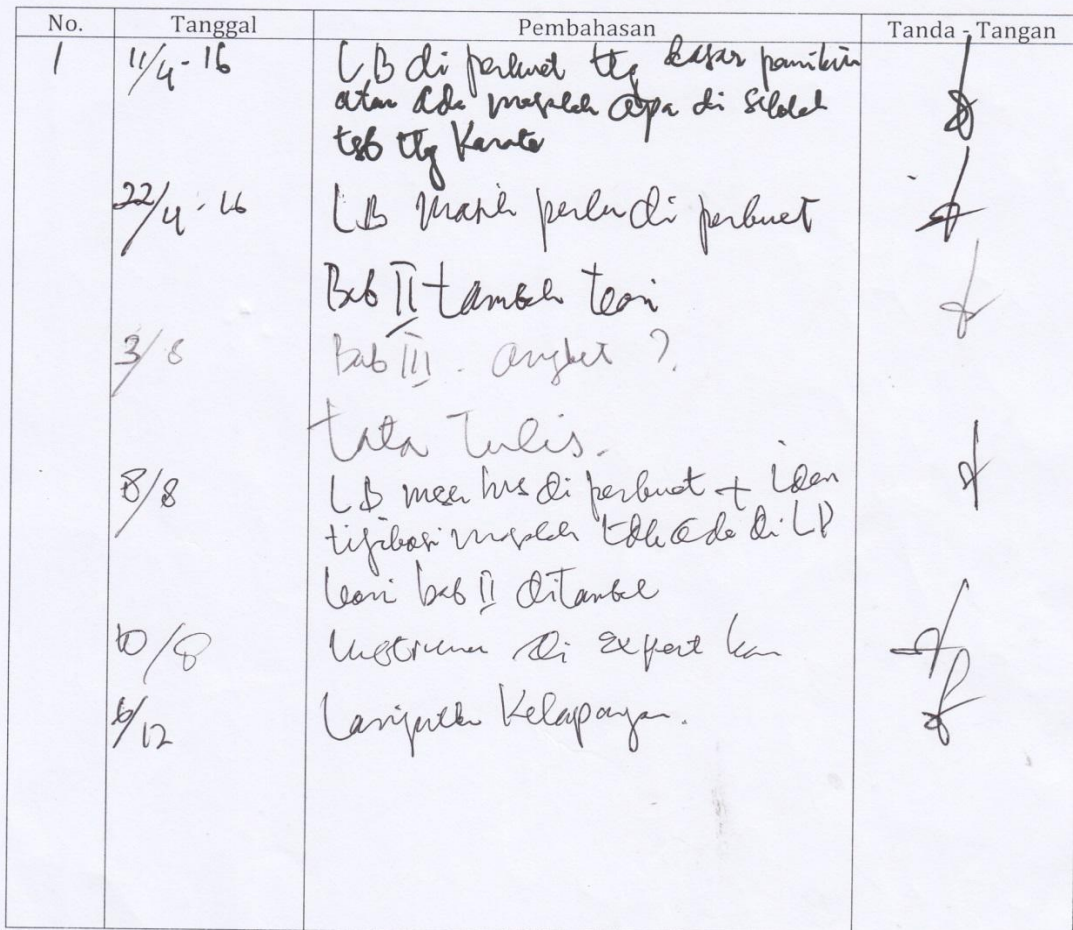 No. Tanggal Pembahasan Tanda - Tangan
1 11/4-16 LB di perkuat ttg dasar pemikiran
atau ada masalah apa di sekolah
tsb ttg Karate
22/4-16 LB masih perlu di perkuat
Bab II tambah teori
3/8 Bab III. angket ?
tata tulis.
8/8 LB masih hrs di perkuat + iden
tifikasi masalah tdk ada di LB
teori bab II ditambah
10/8 Instrumen di expert kan
6/12 Lanjutkan Kelapangan.